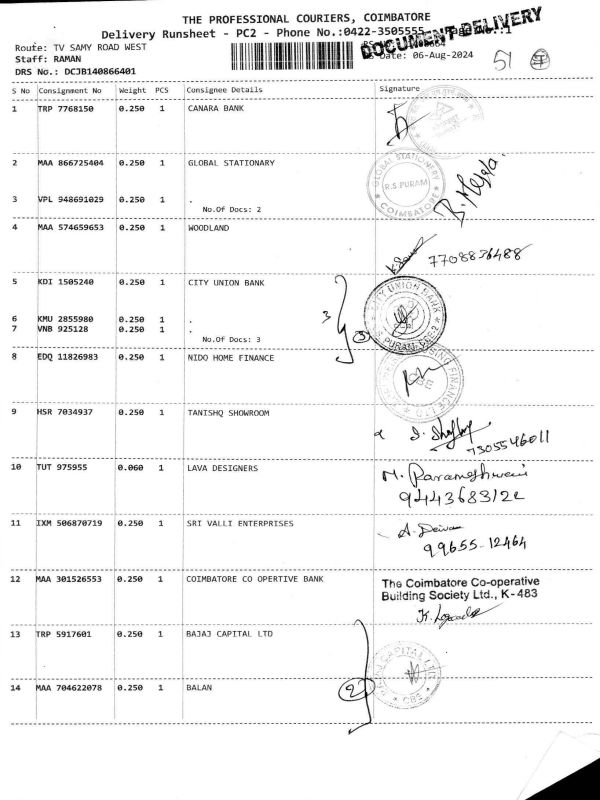 THE PROFESSIONAL COURIERS, COIMBATORE
Delivery Runsheet - PC2 - Phone No.:0422-3505555
DOCUMENT DELIVERY
Route: TV SAMY ROAD WEST
Staff: RAMAN
Date: 06-Aug-2024
51
DRS No.: DCJB140866401
S No Consignment No Weight PCS Consignee Details Signature
1 TRP 7768150 0.250 1 CANARA BANK
2 MAA 866725404 0.250 1 GLOBAL STATIONARY
GLOBAL STATIONERY
R.S.PURAM
COIMBATORE
3 VPL 948691029 0.250 1 .
No.Of Docs: 2
4 MAA 574659653 0.250 1 WOODLAND
7708836488
5 KDI 1505240 0.250 1 CITY UNION BANK
CITY UNION BANK
6 KMU 2855980 0.250 1 .
7 VNB 925128 0.250 1 .
No.Of Docs: 3
3
3
8 EDQ 11826983 0.250 1 NIDO HOME FINANCE
9 HSR 7034937 0.250 1 TANISHQ SHOWROOM
7305546011
10 TUT 975955 0.060 1 LAVA DESIGNERS
M. Parameshwari
11 IXM 506870719 0.250 1 SRI VALLI ENTERPRISES
99655-12464
12 MAA 301526553 0.250 1 COIMBATORE CO OPERTIVE BANK
The Coimbatore Co-operative
Building Society Ltd., K-483
13 TRP 5917601 0.250 1 BAJAJ CAPITAL LTD
14 MAA 704622078 0.250 1 BALAN
2